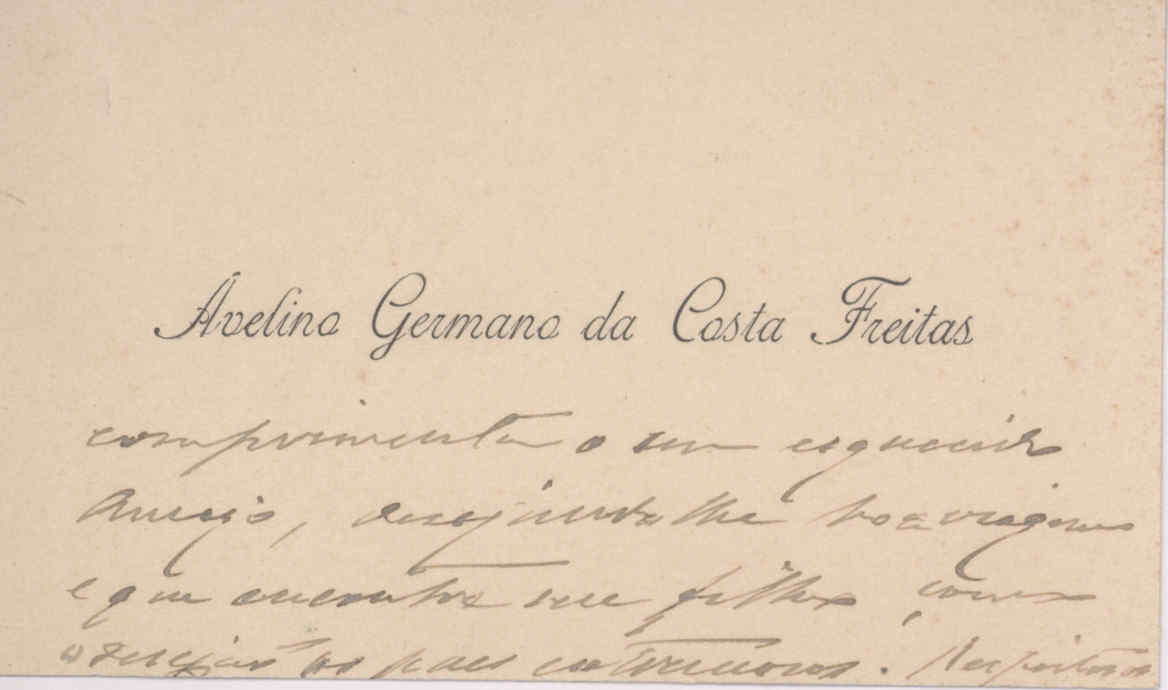 Avelino Germano da Costa Freitas
comprimenta o seu esquecido
Amigo, desejando lhe boa viagem
e que encontre seu filho, como
o desejão os paes extremosos.